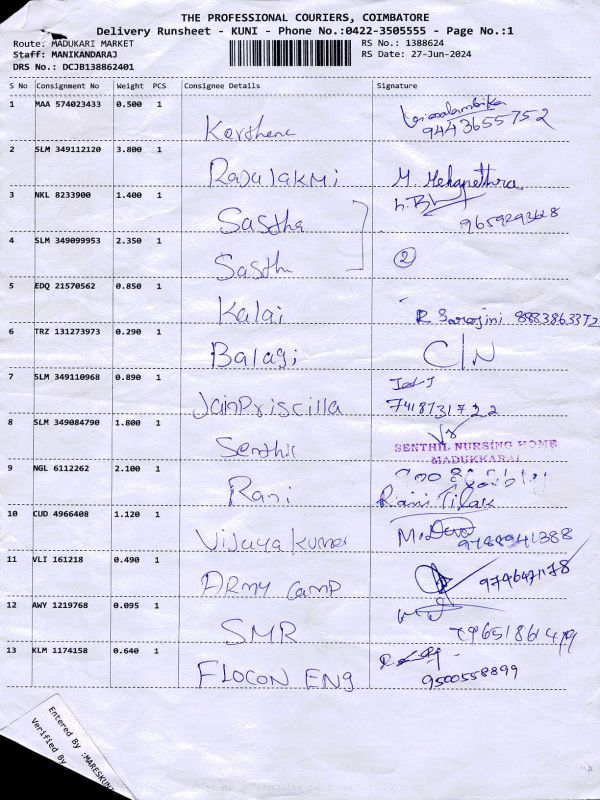 THE PROFESSIONAL COURIERS, COIMBATORE
Delivery Runsheet - KUNI - Phone No.:0422-3505555 - Page No.:1
Route: MADUKARI MARKET RS No.: 1388624
Staff: MANIKANDARAJ RS Date: 27-Jun-2024
DRS No.: DCJB138862401
S No Consignment No Weight PCS Consignee Details Signature
1 MAA 574023433 0.500 1
9443655752
2 SLM 349112120 3.800 1
Rajulakmi
3 NKL 8233900 1.400 1
Sastha
4 SLM 349099953 2.350 1
Sasth 2
5 EDQ 21570562 0.850 1
Kalai R Sarojini
6 TRZ 131273973 0.290 1
Balaji C/N
7 SLM 349110968 0.890 1
JainPriscilla 7418731722
8 SLM 349084790 1.800 1
Senthil SENTHIL NURSING HOME
MADUKKARAI
9 NGL 6112262 2.100 1
Rani Rani Tilak
10 CUD 4966408 1.120 1
Vijaya kumar
11 VLI 161218 0.490 1
ARMY camp
12 AWY 1219768 0.095 1
SMR
13 KLM 1174158 0.640 1
FLOCON ENG 9500558899
Entered By :MARESKUN
Verified By :